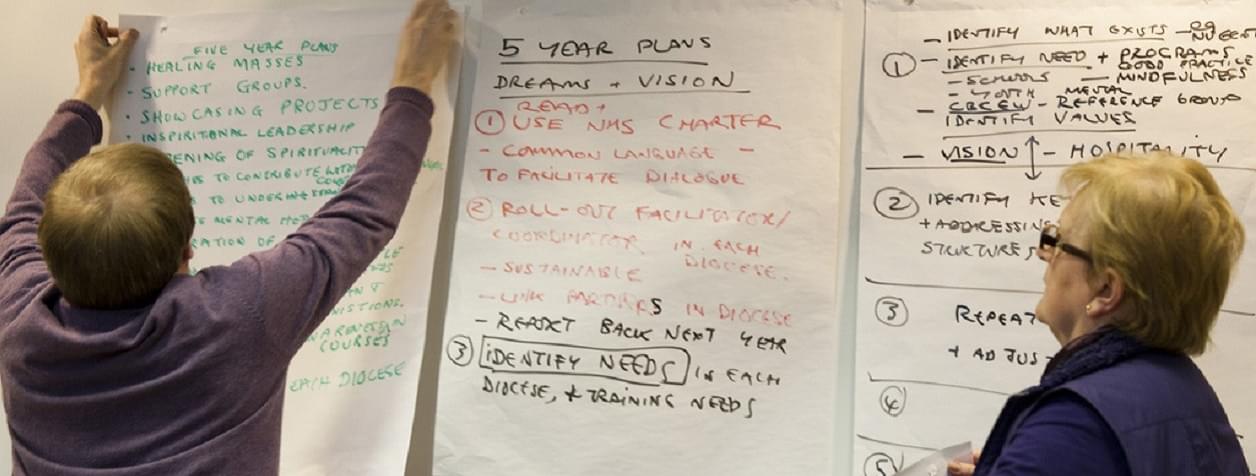 FIVE YEAR PLANS
· HEALING MASSES
· SUPPORT GROUPS.
· SHOWCASING PROJECTS
· INSPIRITIONAL LEADERSHIP
ENING OF SPIRITUALIT
TO CONTRIBUTE
TO
MENTAL
ATION OF
COURSES
EACH DIOCESE
5 YEAR PLANS
DREAMS + VISION
READ +
① USE NHS CHARTER
- COMMON LANGUAGE -
TO FACILITATE DIALOGUE
② ROLL-OUT FACILITATOR/
COORDINATOR IN EACH
DIOCESE.
- SUSTAINABLE
- LINK PARTNERS IN DIOCESE
- REPORT BACK NEXT YEAR
③ IDENTIFY NEEDS IN EACH
DIOCESE, + TRAINING NEEDS
- IDENTIFY WHAT EXISTS -
① - IDENTIFY NEED + PROGRAMS
GOOD PRACTICE
- SCHOOLS - MINDFULNESS
- YOUTH MENTAL
- CBCEW - REFERENCE GROUP
IDENTIFY VALUES
- VISION ↕ - HOSPITALITY
② IDENTIFY KE
+ ADDRESSING
STRUCTURES
③ REPEAT
+ ADJUS
④
⑤